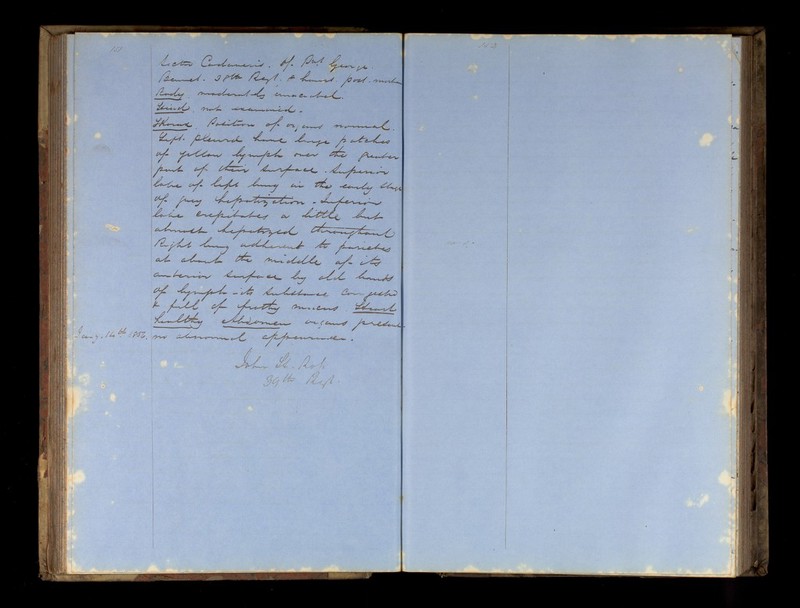 Sectio Cadaveris. of Pvt George
38th Regt. 8 hours post-mortem
Body moderately emaciated
Head not examined.
Thorax Position of organs normal.
Left pleura have large patches
of yellow lymph over the greater
part of their surface. Superior
lobe of left lung in the early stage
of grey hepatization. Inferior
lobe crepitates a little but
almost hepatized throughout
Right lung adherent to parietes
at about the middle of its
anterior surface by old bands
of lymph - its substance congested
& full of frothy mucous Heart
healthy Abdomen organs present
Jany. 14th 1856, no abnormal appearance.
John
39th Regt.